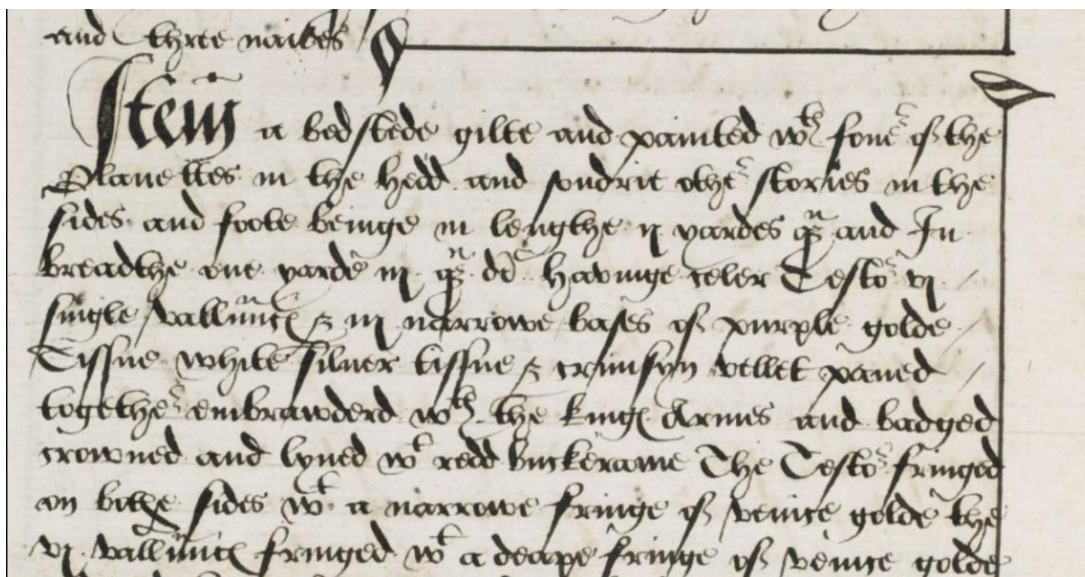 and three nailes
Item a bedstede gilte and painted wth some of the
Planettes in the hedd and sondrie other stories in the
sides and foote beinge in lengthe ij yardes qr and In
breadthe one yarde iij qr di havinge celer Testor vj
single vallunces & iij narrowe bases of purple golde
Tissue white silver tissue & crimsyn vellet paned
together embrawderd wth the kinges Armes and badged
crowned and lyned wt redd buckerame The Testor fringed
on bothe sides wt a narrowe fringe of venice golde the
vj vallunces fringed wt a deape fringe of venice golde